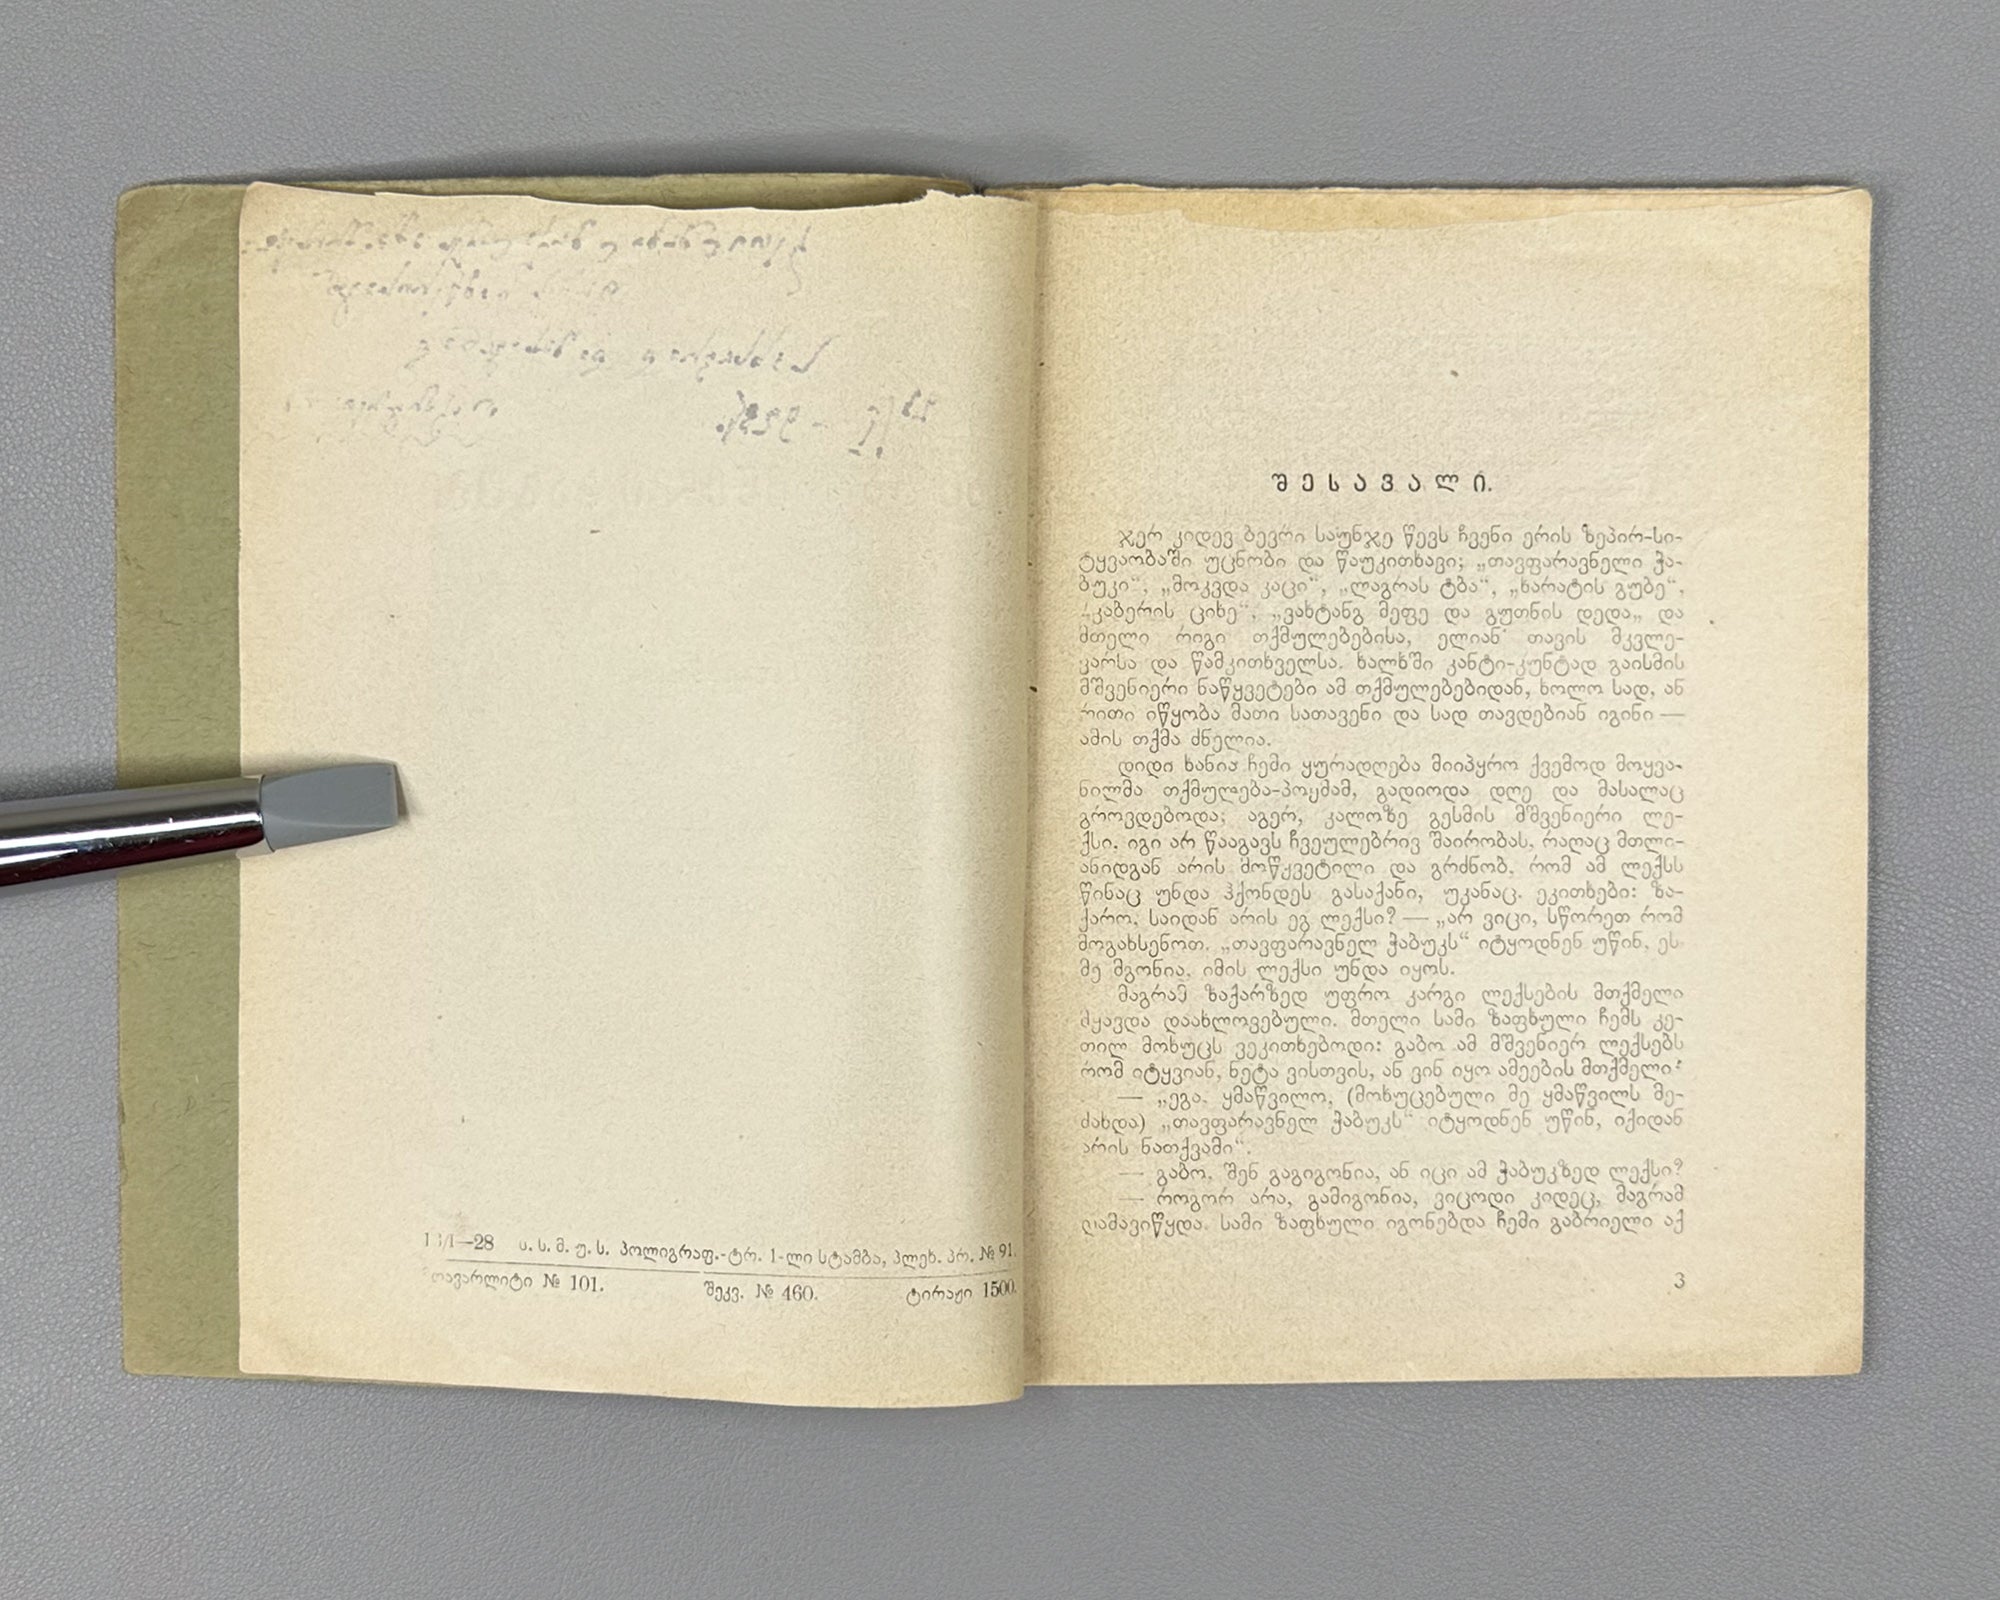 13/I—28 ს. ს. მ. უ. ს. პოლიგრაფ.-ტრ. 1-ლი სტამბა, პლეხ. პრ. № 91.
მთავარლიტი № 101. შეკვ. № 460. ტირაჟი 1500.
შესავალი.
ჯერ კიდევ ბევრი საუნჯე წევს ჩვენი ერის ზეპირ-სი-
ტყვაობაში უცნობი და წაუკითხავი; „თავფარავნელი ჭა-
ბუკი“, „მოკვდა კაცი“, „ლაგრას ტბა“, „ხარატის გუბე“,
„კაბერის ციხე“, „ვახტანგ მეფე და გუთნის დედა„ და
მთელი რიგი თქმულებებისა, ელიან თავის მკვლე-
ვარსა და წამკითხველსა. ხალხში კანტი-კუნტად გაისმის
მშვენიერი ნაწყვეტები ამ თქმულებებიდან, ხოლო სად, ან
რითი იწყობა მათი სათავენი და სად თავდებიან იგინი —
ამის თქმა ძნელია.
დიდი ხანია ჩემი ყურადღება მიიპყრო ქვემოდ მოყვა-
ნილმა თქმულება-პოემამ, გადიოდა დღე და მასალაც
გროვდებოდა; აგერ, კალოზე გესმის მშვენიერი ლე-
ქსი. იგი არ წააგავს ჩვეულებრივ შაირობას, რაღაც მთლი-
ანიდგან არის მოწყვეტილი და გრძნობ, რომ ამ ლექსს
წინაც უნდა ჰქონდეს გასაქანი, უკანაც. ეკითხები: ზა-
ქარო, საიდან არის ეგ ლექსი? — „არ ვიცი, სწორეთ რომ
მოგახსენოთ. „თავფარავნელ ჭაბუკს“ იტყოდნენ უწინ, ეს
მე მგონია, იმის ლექსი უნდა იყოს.
მაგრამ ზაქარზედ უფრო კარგი ლექსების მთქმელი
მყავდა დაახლოვებული. მთელი სამი ზაფხული ჩემს კე-
თილ მოხუცს ვეკითხებოდი: გაბო ამ მშვენიერ ლექსებს
რომ იტყვიან, ნეტა ვისთვის, ან ვინ იყო ამეების მთქმელი?
— „ეგა, ყმაწვილო, (მოხუცებული მე ყმაწვილს მე-
ძახდა) „თავფარავნელ ჭაბუკს“ იტყოდნენ უწინ, იქიდან
არის ნათქვამი“.
— გაბო, შენ გაგიგონია, ან იცი ამ ჭაბუკზედ ლექსი?
— როგორ არა, გამიგონია, ვიცოდი კიდეც, მაგრამ
დამავიწყდა. სამი ზაფხული იგონებდა ჩემი გაბრიელი აქ
3